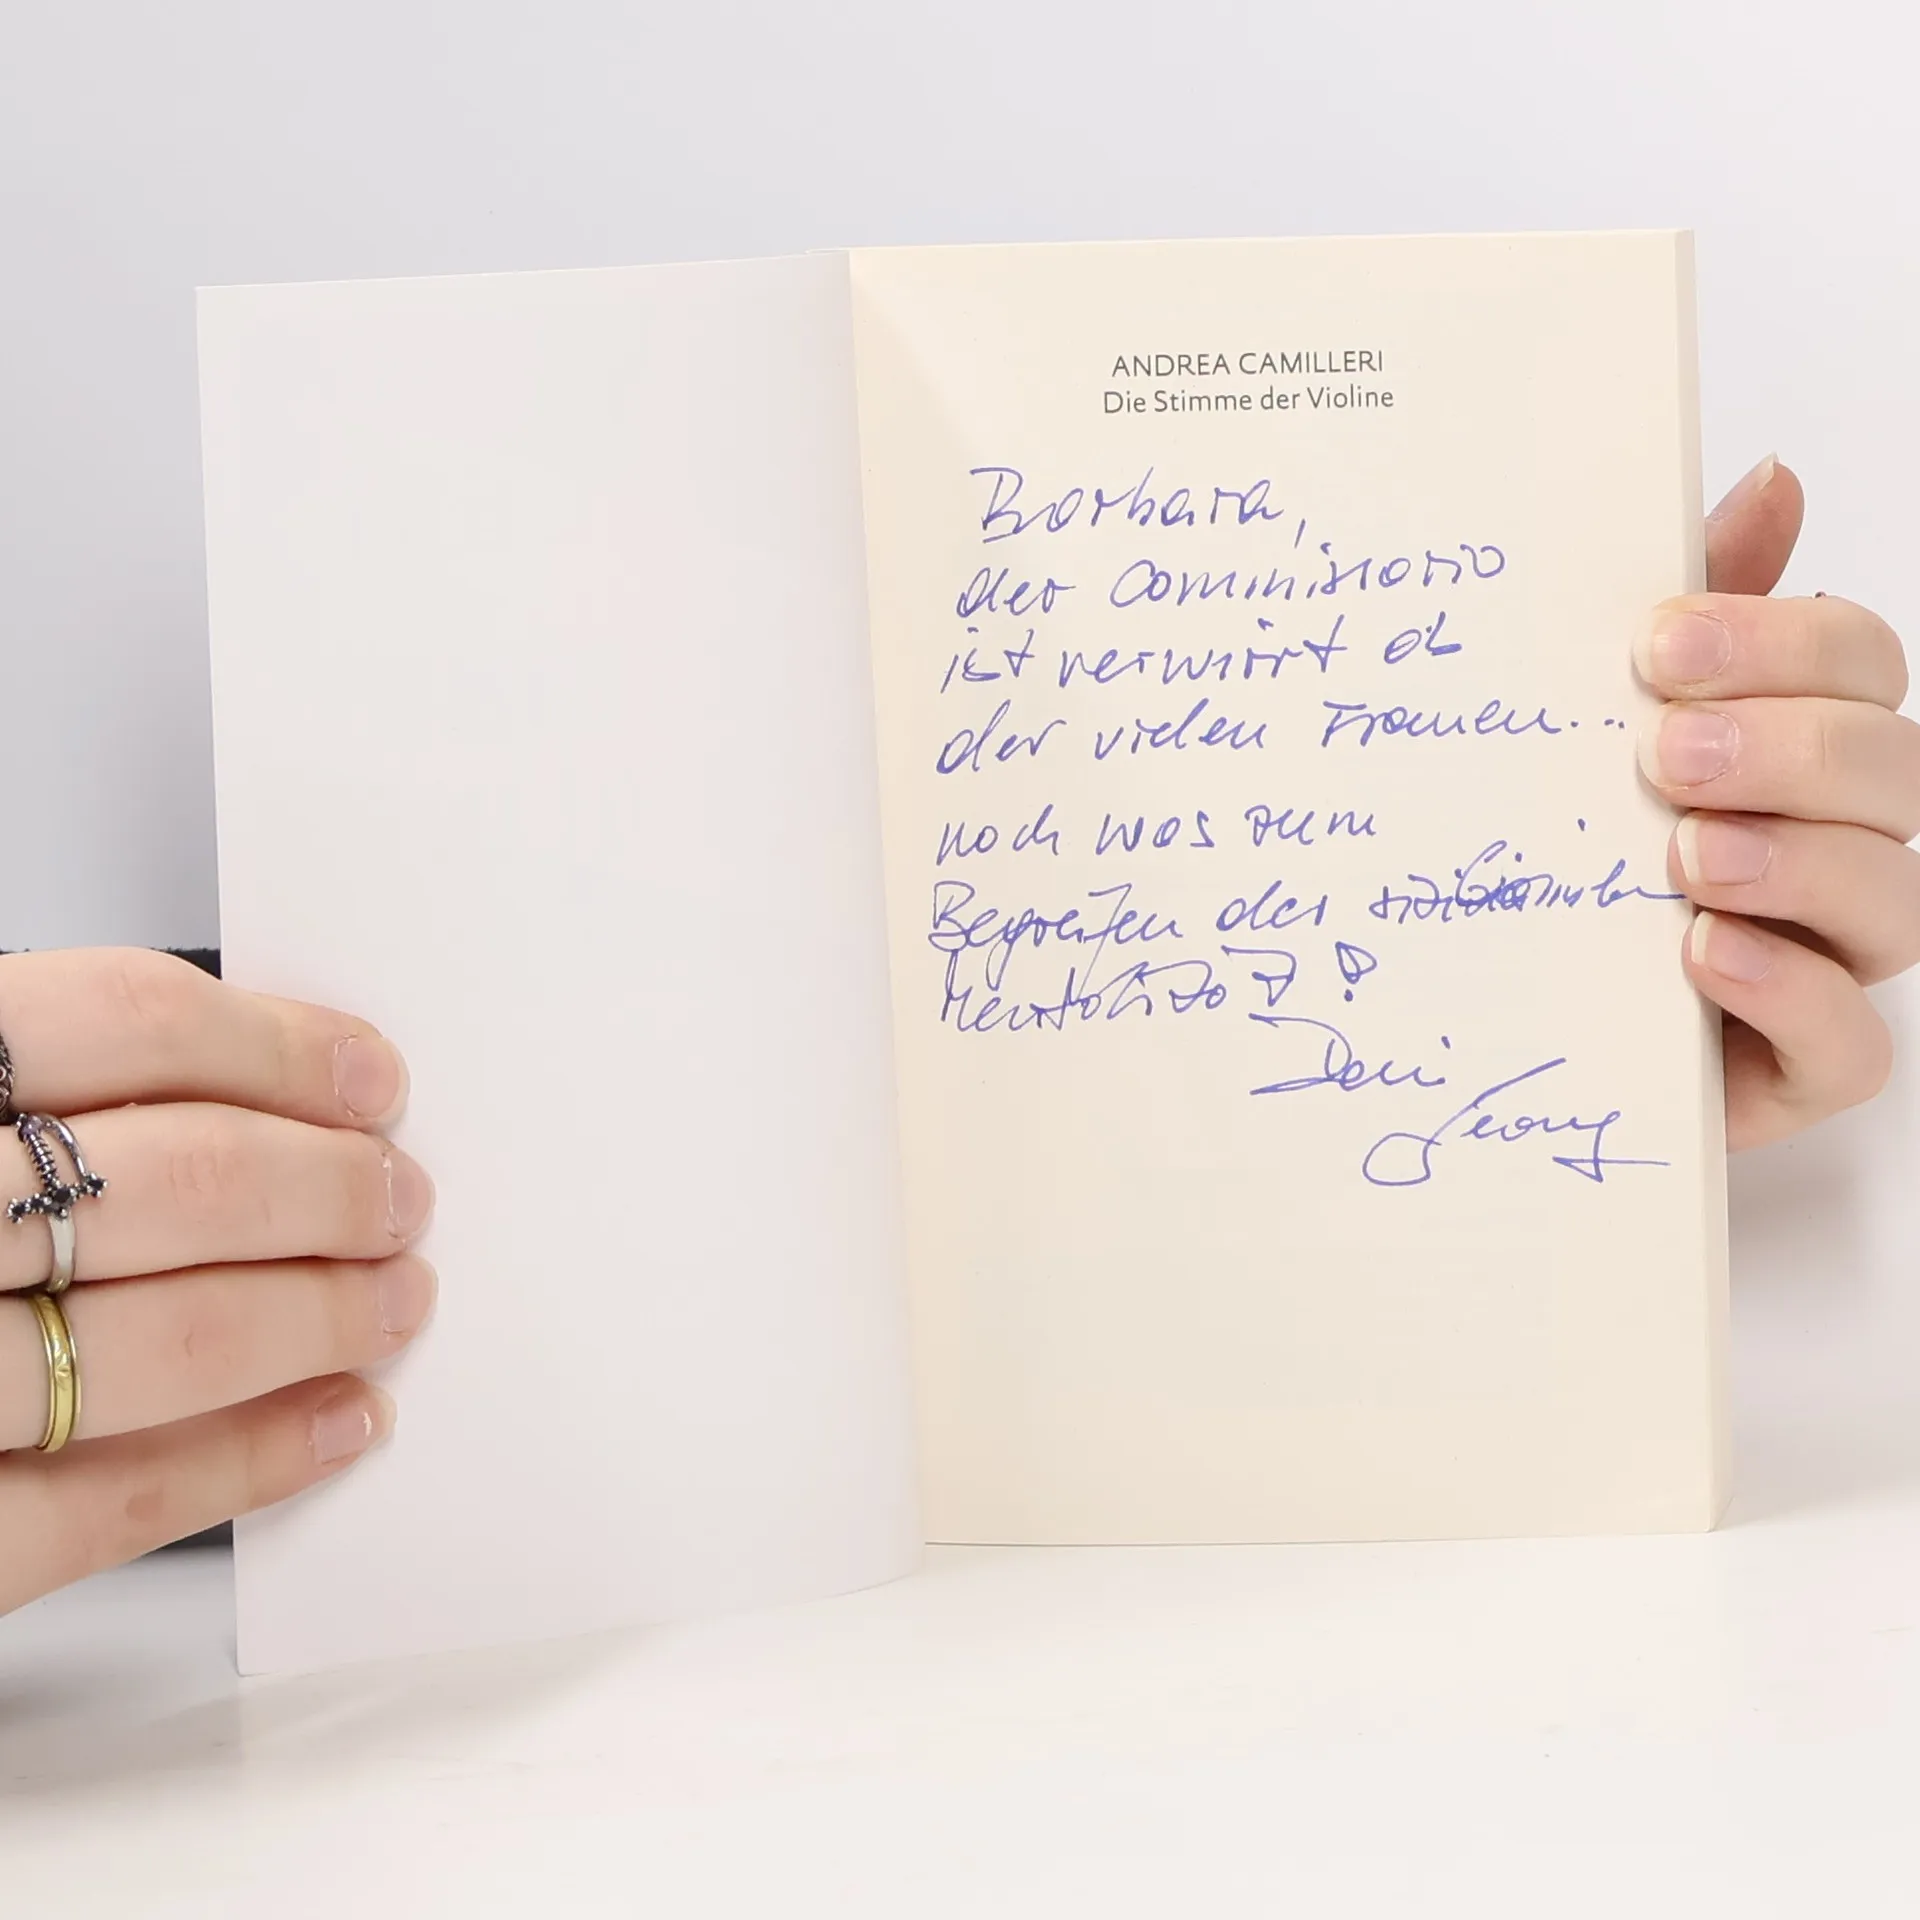 ANDREA CAMILLERI
Die Stimme der Violine
Barbara,
der Commissario
ist verwirrt ob
der vielen Frauen...
noch was zum
Begreifen der
Mentalität!
Dein
Georg